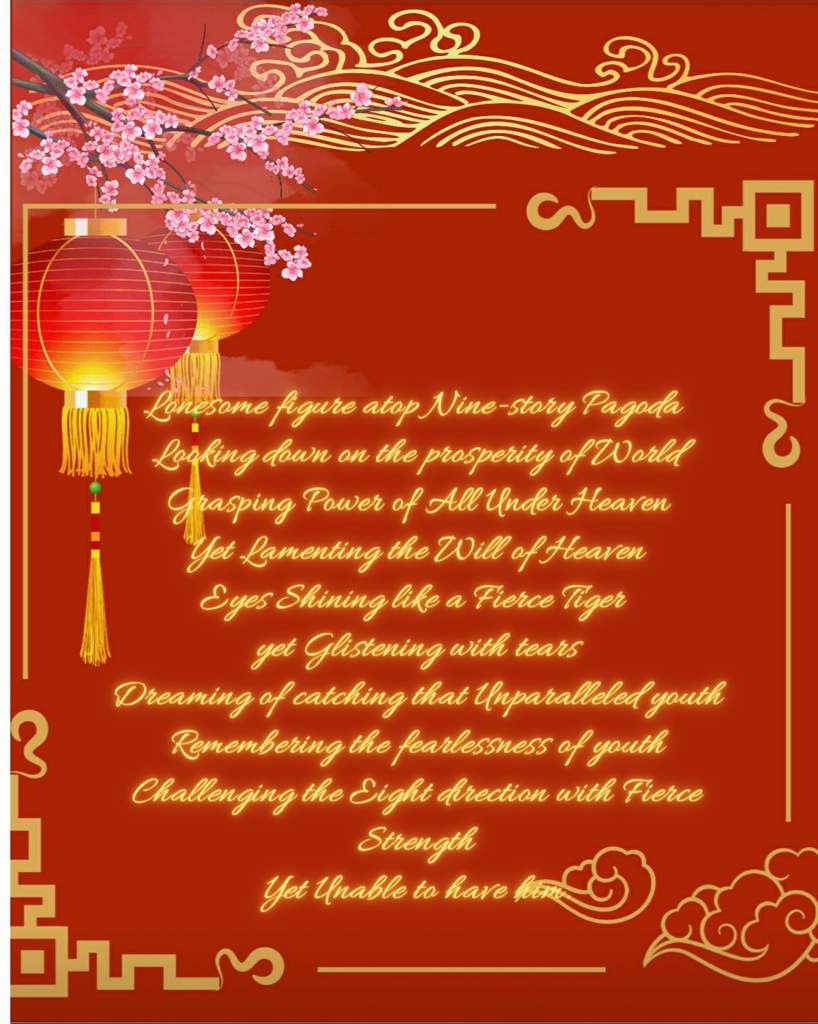 Lonesome figure atop Nine-story Pagoda
Looking down on the prosperity of World
Grasping Power of All Under Heaven
Yet Lamenting the Will of Heaven
Eyes Shining like a Fierce Tiger
yet Glistening with tears
Dreaming of catching that Unparalleled youth
Remembering the fearlessness of youth
Challenging the Eight direction with Fierce
Strength
Yet Unable to have him.